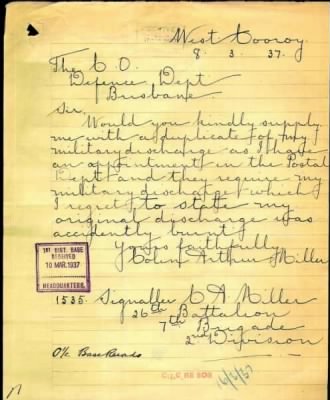 West Cooroy
8. 3. 37.
The C. O.
Defence Dept
Brisbane.
Sir.
Would you kindly supply
me with a duplicate of my
military discharge as I have
an appointment in the Postal
Dept and they require my
military discharge which
I regret to state my
original discharge was
accidently burnt
Yours faithfully
Colin Arthur Miller
1ST DIST. BASE
RECEIVED
10 MAR. 1937
HEADQUARTERS.
1535 Signaller C A Miller
26th Battalion
7th Brigade
2nd Division
O/c Base Records
16/3/37